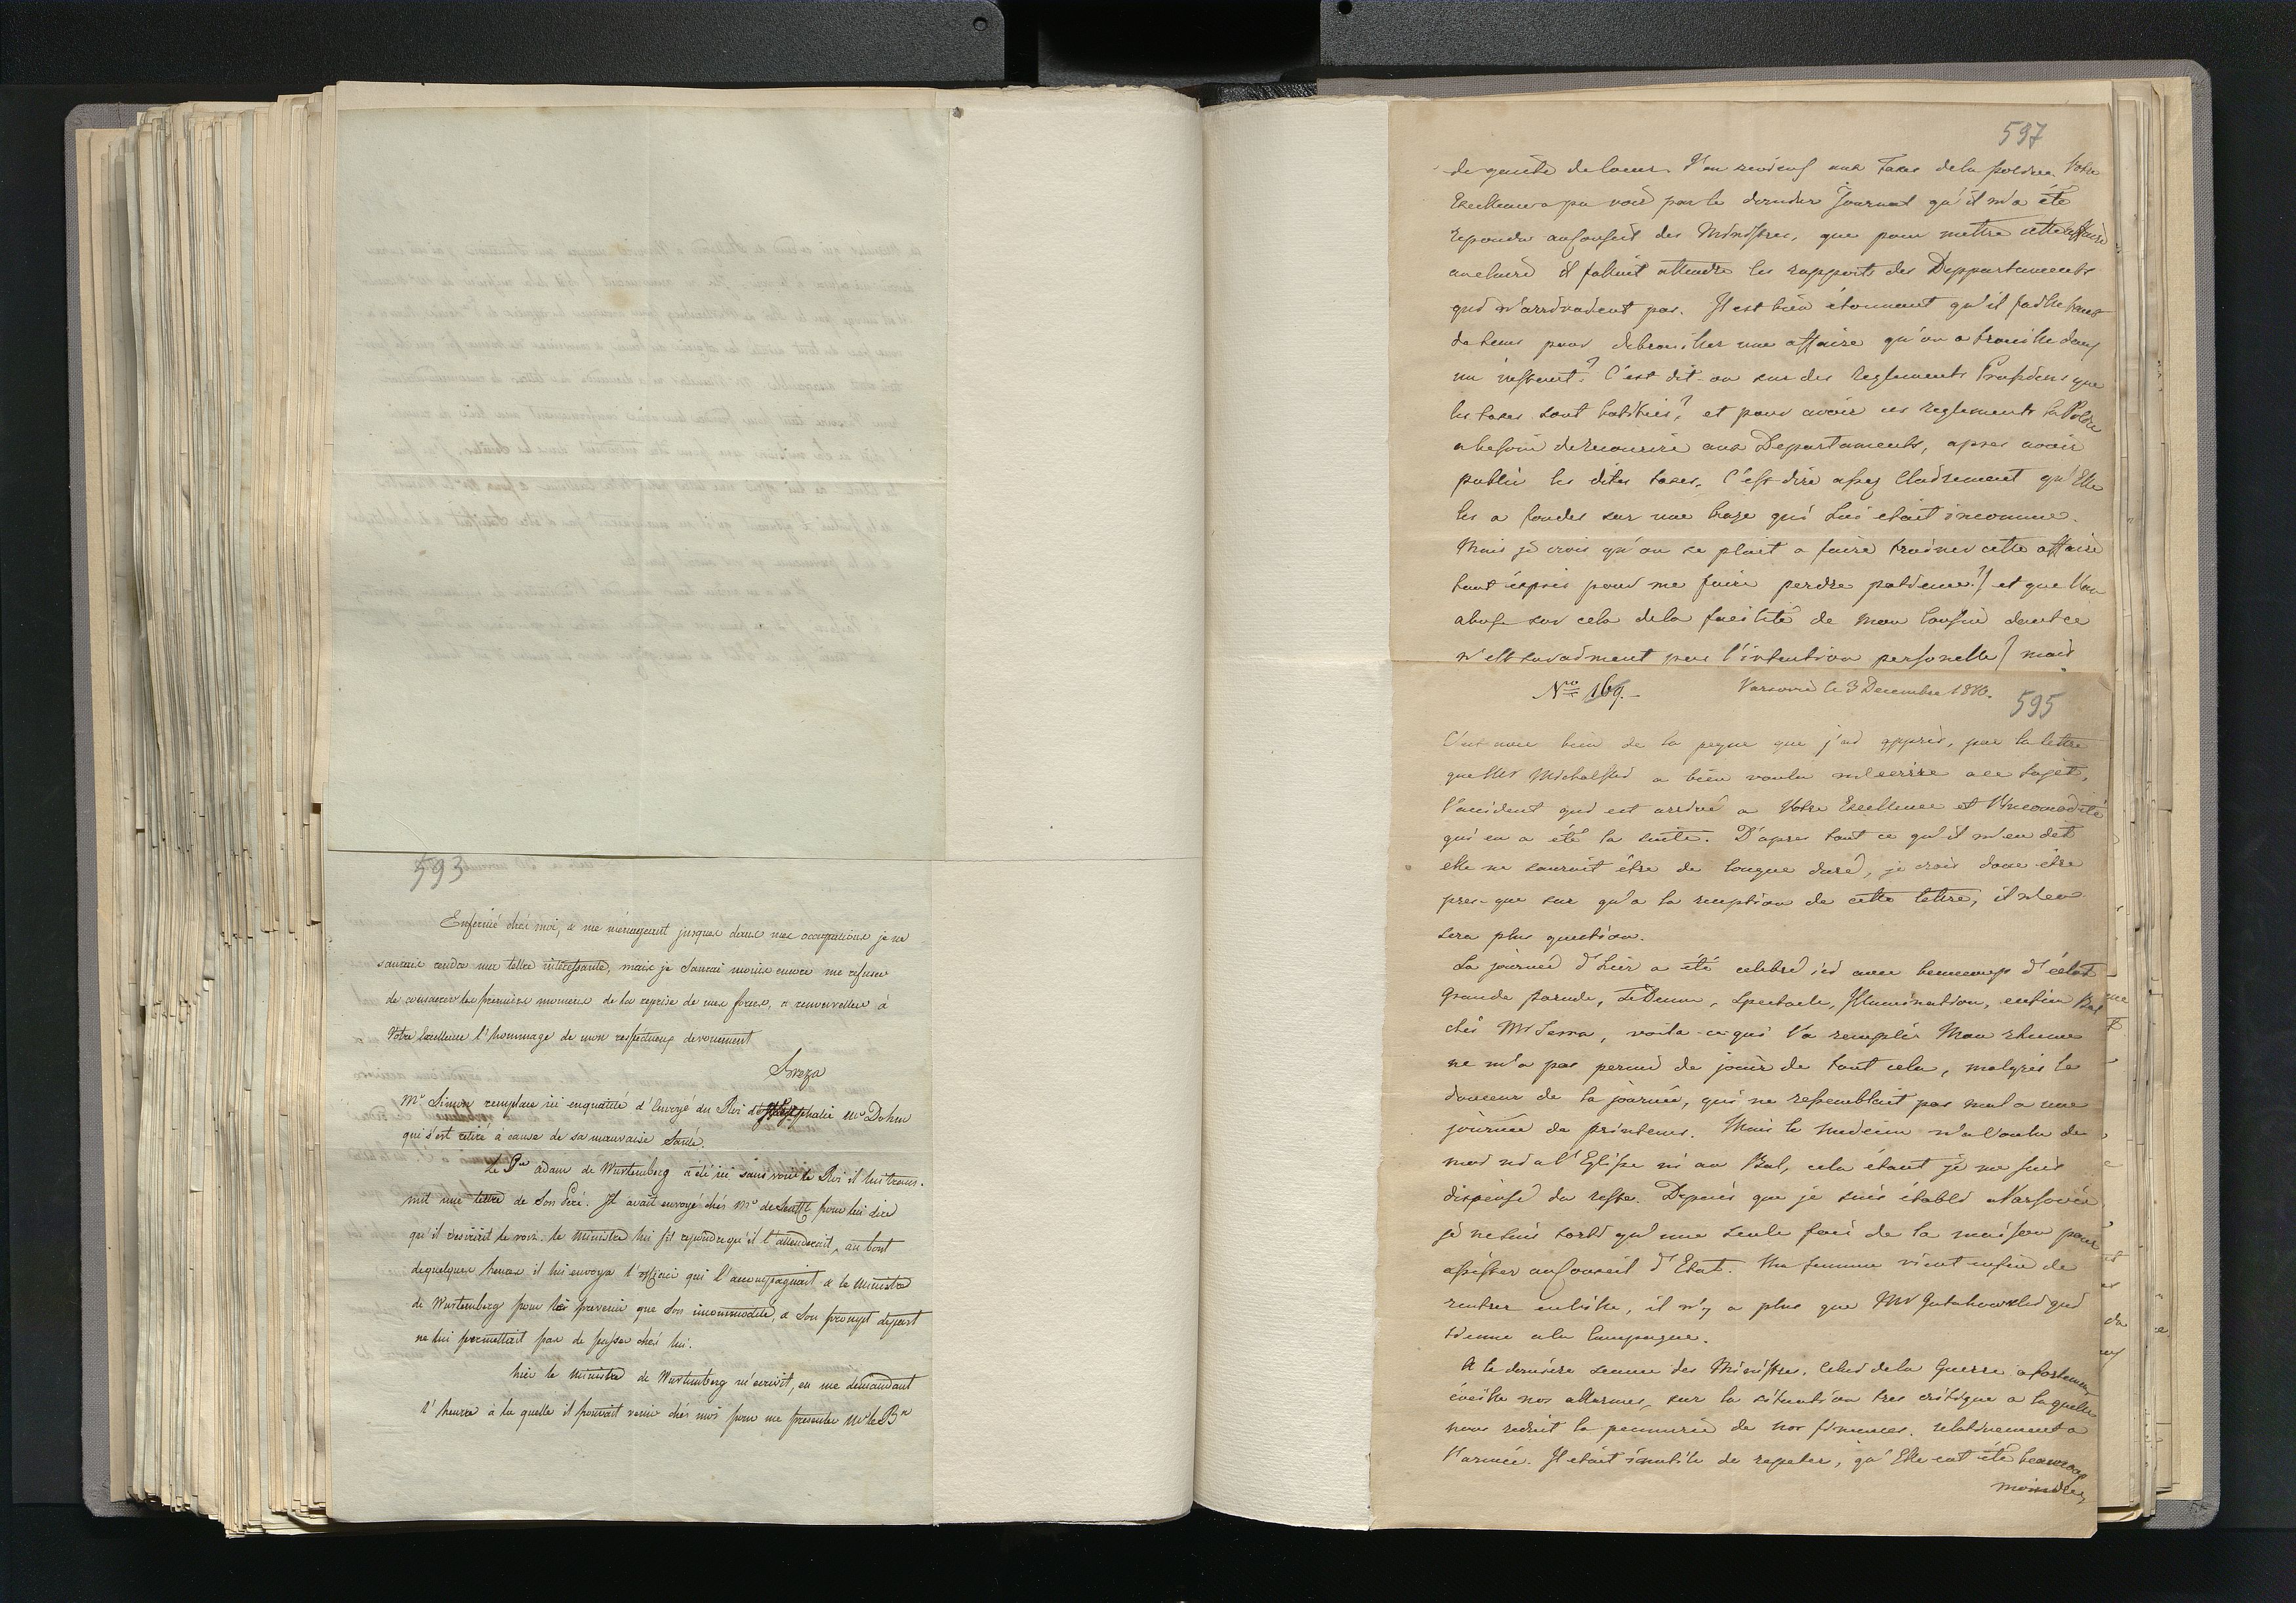 593
Enfermé chés moi, & me ménageant jusques dans mes occupations je ne
saurais rendre ma lettre intéressante, mais je saurai moins encore me refuser
de consacrer les premiers momens de la reprise de mes forces, a renouveller à
Votre Excellence l'hommage de mon respectueux devouement
Breza
Mr Simon remplace ici en qualité d'Envoyé du Roi de Westphalie Mr Dohm
qui s'est retiré à cause de sa mauvaise santé.
Le Pce adam de Wurtemberg a été ici sans voir le Roi il lui trans-
mit une lettre de Son Peré. Il avait envoyé chés Mr de Senfft pour lui dire
qu'il desirait le voir. le Ministre lui fit repondre qu'il l'attenderait, au bout
de quelques heures il lui envoya l'officier qui l'accompagnait & le Ministre
de Wurtemberg pour le prevenir que Son incommodité, & Son prompt depart
ne lui permettait pas de passer chés lui.
hier le Ministre de Wurtemberg m'ecrivit, en me demandant
l'heure à la quelle il pouvait venir chés moi pour me presenter Mr le Bn
597
de gaieté de coeur. J'en reviens aux Taxes de la police. Votre
Excellence a pu voir par le dernier Journal qu'il m'a été
repondu au Conseil des Ministres, que pour mettre cette affaire
au clair il fallait attendre les rapports des Deppartements
qui n'arrivaient pas. Il est bien étonnant qu'il faille tant
de tems pour debrouiller une affaire qu'on a brouillé dans
un instant? C'est dit-on sur des reglements Prussiens que
les taxes sont batties? et pour avoir ces reglements la Police
a besoin de recourire aux Departaments, apres avoir
publié les dites taxes. C'est dire assez clairement qu'Elle
les a fondés sur une base qui Lui etait inconnue.
Mais je crois qu'on se plait a faire trainer cette affaire
tout éxprés pour me faire perdre patience! / et que l'on
abuse sur cela de la facilité de mon Cousin dont ce
n'est surement pas l'intention personelle / mais
Nro 169.
Varsovie le 3 Decembre 1810.
595
C'est avec bien de la peyne que j'ai appris, par la lettre
que Mr Michalski a bien voulu m'ecrire a ce sujet,
l'accident qui est arrivé a Votre Excellence et l'incomodité
qui en a été la suite. D'apres tout ce qu'il m'en dit
elle ne saurait être de longue duré, je crois donc être
pres-que sur qu'a la reception de cette lettre, il n'en
sera plus question.
La journée d'hier a été celebré ici avec beaucoup d'éclat
Grande parade, TeDeum, Spectacle, Illumination, enfin Bal
chés Mr Serra, voila ce qui l'a remplie. Mon rhume
ne m'a pas permis de jouir de tout cela, malgrés la
douceur de la journée, qui ne ressemblait pas mal a une
journée de printems. Mais le medecin n'a voulu de
moi ni a l'Eglise ni au Bal, cela étant je me suis
dispensé du reste. Depuis que je suis établi a Varsovie
je ne suis sorti qu'une seule fois de la maison pour
assister au Conseil d'Etat. Ma femme vient enfin de
rentrer en ville, il n'y a plus que Mr Gutakowski qui
tienne a la Campagne.
A la derniere seance des Ministres, Celui de la Guerre a fortement
éveillé nos allarmes, sur la situation tres critique a laquelle
nous reduit la penurie de nos finances, relativement a
l'armée. Il etait inutile de repeter, qu'Elle eut été beaucoup
moindre,